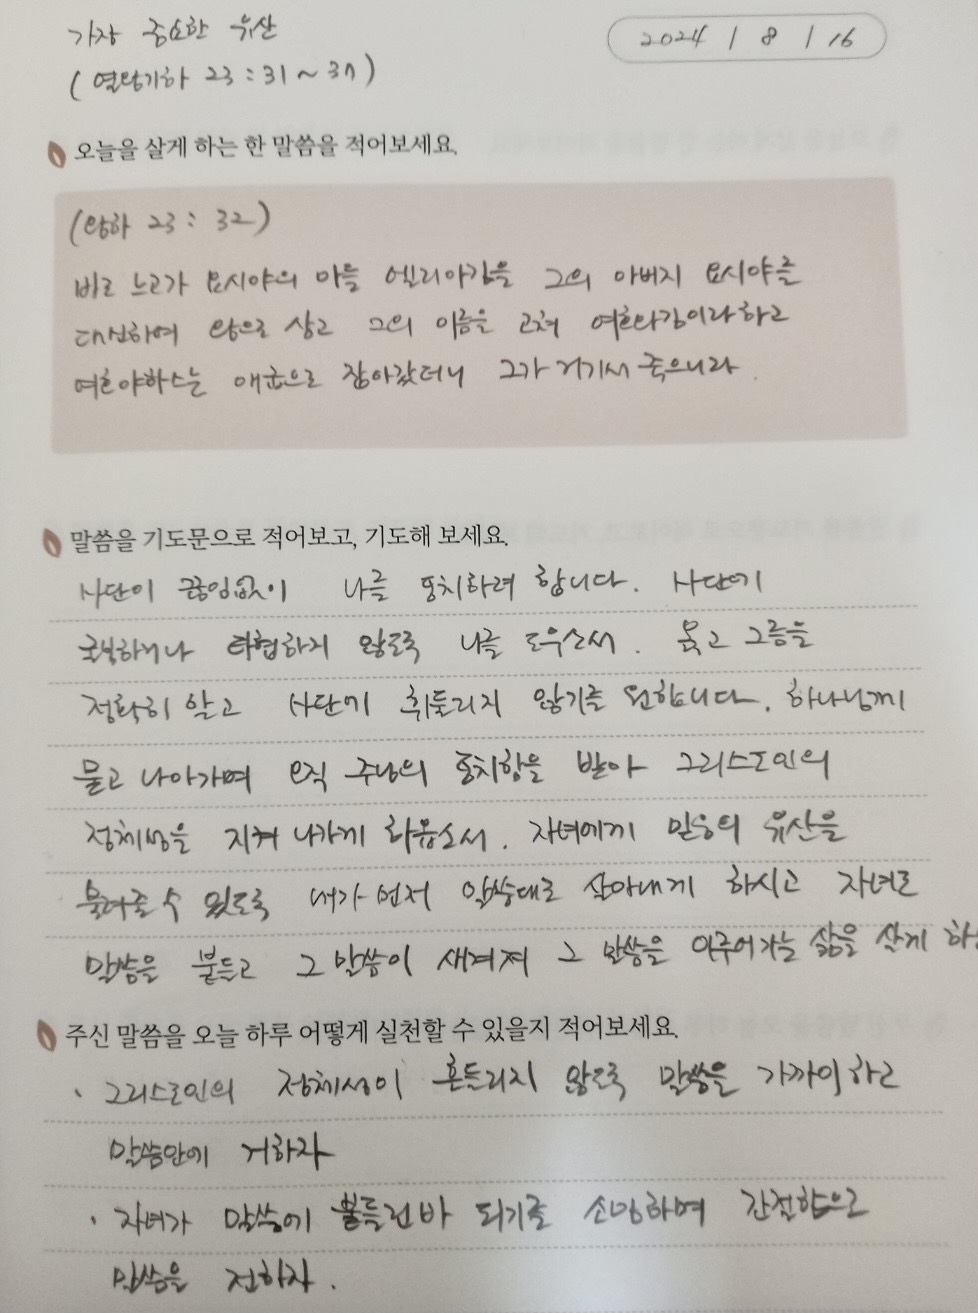 가장 중요한 유산
2024 / 8 / 16
(열왕기하 23 : 31 ~ 37)
오늘을 살게 하는 한 말씀을 적어보세요.
(왕하 23 : 32)
바로 느고가 요시야의 아들 엘리아김을 그의 아버지 요시야를
대신하여 왕으로 삼고 그의 이름을 고쳐 여호야김이라 하고
여호아하스는 애굽으로 잡아갔더니 그가 거기서 죽으니라.
말씀을 기도문으로 적어보고, 기도해 보세요.
사단이 끊임없이 나를 통치하려 합니다. 사단에
굴복하거나 타협하지 않도록 나를 도우소서. 옳고 그름을
정확히 알고 사단에 휘둘리지 않기를 원합니다. 하나님께
묻고 나아가며 오직 주님의 통치함을 받아 그리스도인의
정체성을 지켜 나가게 하옵소서. 자녀에게 믿음의 유산을
물려줄 수 있도록 내가 먼저 말씀대로 살아내게 하시고 자녀로
말씀을 붙들고 그 말씀이 새겨져 그 말씀을 이루어가는 삶을 살게
주신 말씀을 오늘 하루 어떻게 실천할 수 있을지 적어보세요.
· 그리스도인의 정체성이 흔들리지 않도록 말씀을 가까이하고
말씀안에 거하자
· 자녀가 말씀에 붙들린바 되기를 소망하며 간절함으로
말씀을 전하자.